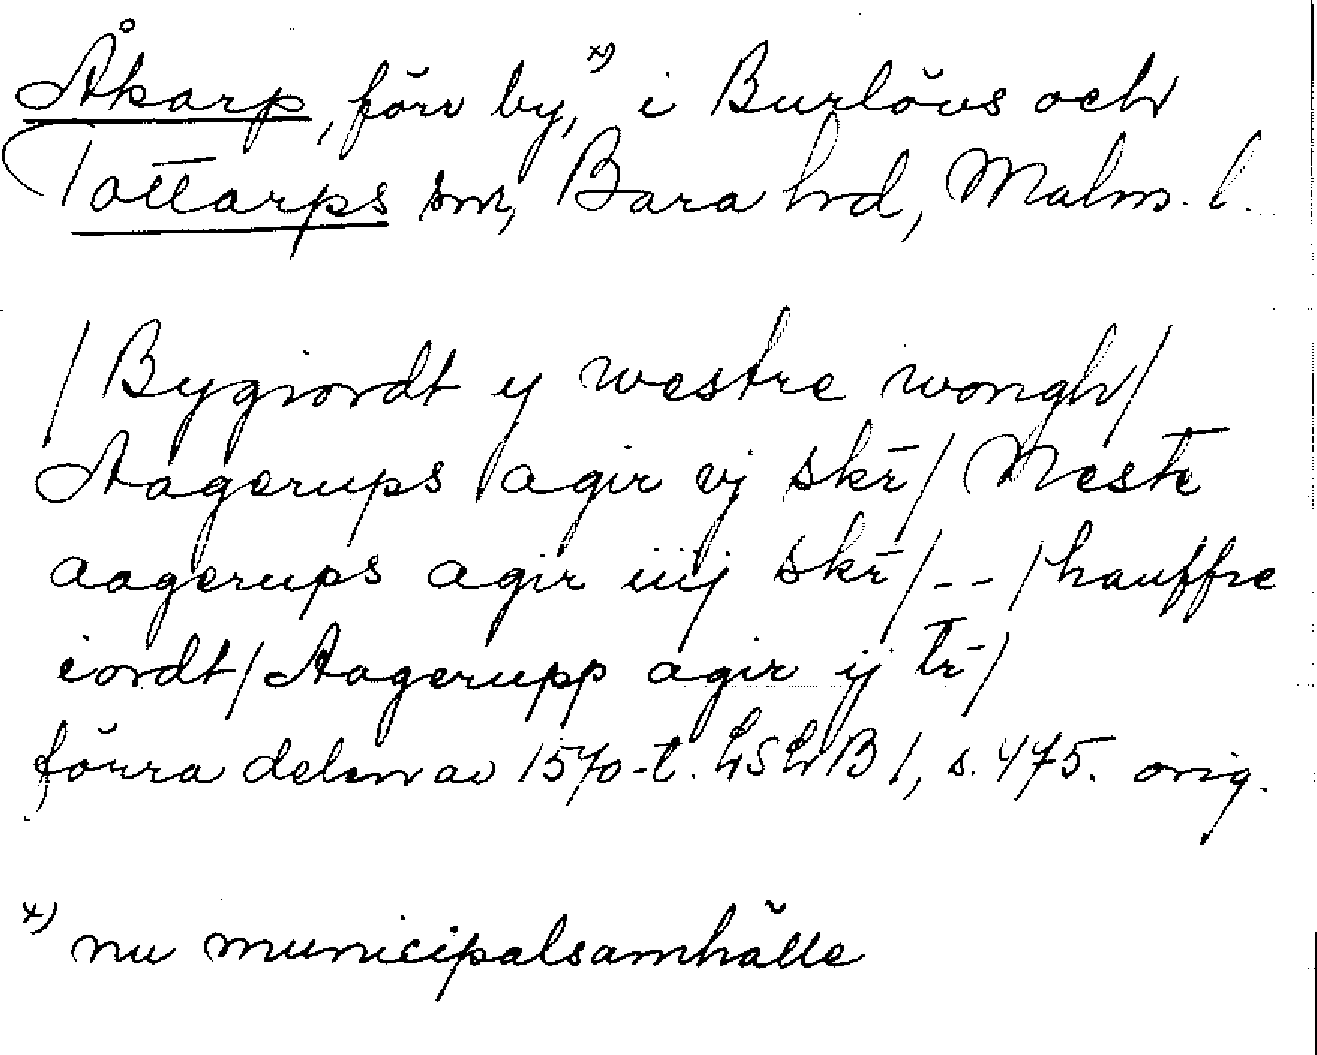 Åkarp, förv by,ˣ⁾ i Burlövs och
(Tottarps sn, Bara hd, Malm. l.
/ Bygiordt y westre wongh /
Aagerups agir vj skr̄ / Nest̄e
aagerups agir iiij skr̄ / - - / hauffre
iordt / Aagerupp agir ij tr̄ /
förra delen av 1570-t. LSLB 1, s. 475. orig.
ˣ⁾ nu municipalsamhälle